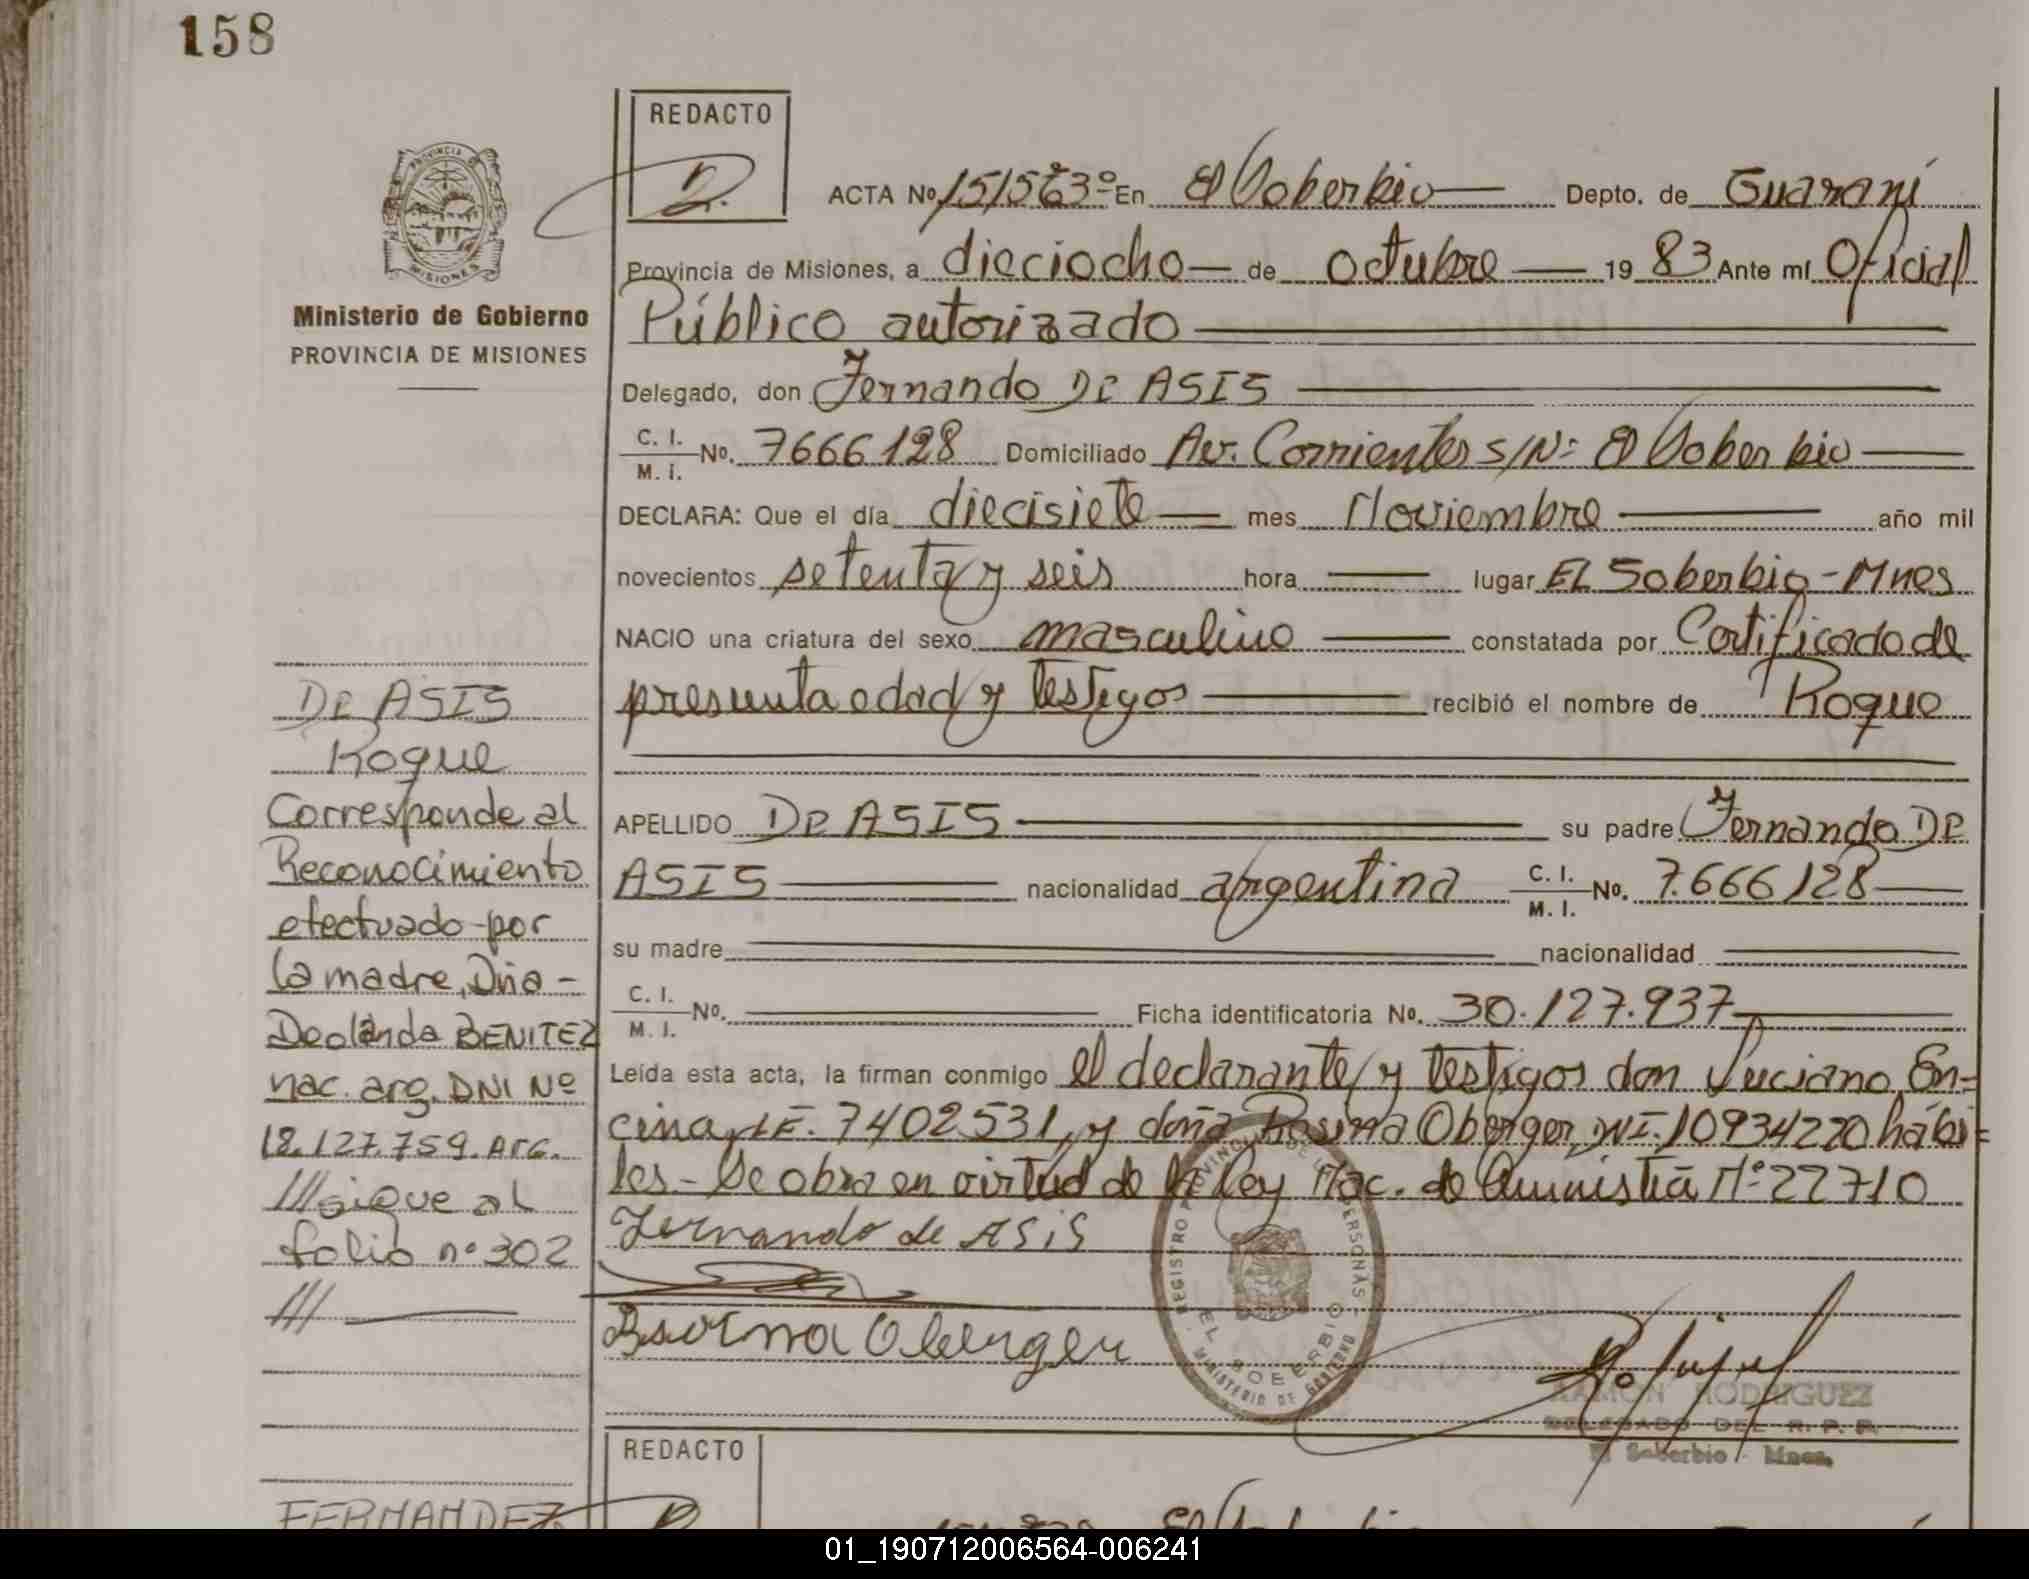 158
REDACTO
ACTA Nº 151563º En El Soberbio Depto. de Guaraní
Provincia de Misiones, a dieciocho de octubre 19 83 Ante mí Oficial
Público autorizado
Ministerio de Gobierno
PROVINCIA DE MISIONES
Delegado, don Fernando DE ASIS
C. I.
M. I. No. 7666128 Domiciliado Av. Corrientes S/Nº El Soberbio
DECLARA: Que el día diecisiete mes Noviembre año mil
novecientos setenta y seis hora lugar EL Soberbio-Mnes
NACIO una criatura del sexo masculino constatada por Certificado de
presunta edad y testigos recibió el nombre de Roque
APELLIDO DE ASIS su padre Fernando DE
ASIS nacionalidad argentina C. I.
M. I. No. 7.666128
su madre nacionalidad
C. I.
M. I. No. Ficha identificatoria No. 30.127.937
Leída esta acta, la firman conmigo el declarante y testigos don Luciano En=
cina, LE. 7402531, y doña Rosina Oberger, DNI. 10934220 hábi=
les.- Se obra en virtud de la Ley Nac. de Amnistía Nº 22710
Fernando de ASiS
Oberger
DE ASIS
Roque
Corresponde al
Reconocimiento
efectuado por
la madre, Dña-
Deolinda BENITEZ
nac. arg. DNI Nº
18.127.759. Arg.
///sigue al
folio nº 302
///
PROVINCIA DE
MISIONES
REGISTRO PROVINCIAL DE LAS PERSONAS
EL SOBERBIO
MINISTERIO DE GOBIERNO
RAMON RODRIGUEZ
DELEGADO DEL R. P. P.
El Soberbio - Mnes.
REDACTO
FERNANDEZ
01_190712006564-006241